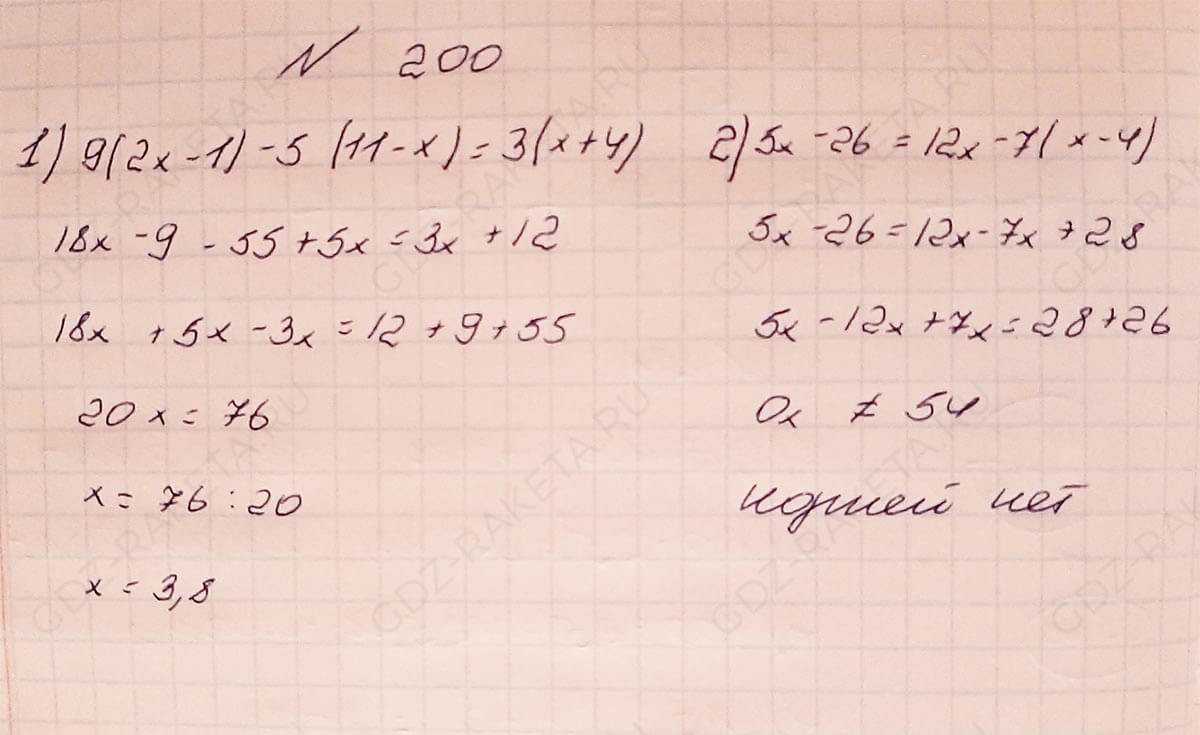 N 200
1) 9(2x-1)-5(11-x)=3(x+4)
18x-9-55+5x=3x+12
18x+5x-3x=12+9+55
20x=76
x=76:20
x=3,8
2) 5x-26=12x-7(x-4)
5x-26=12x-7x+28
5x-12x+7x=28+26
0x≠54
корней нет
GDZ-RAKETA.RU